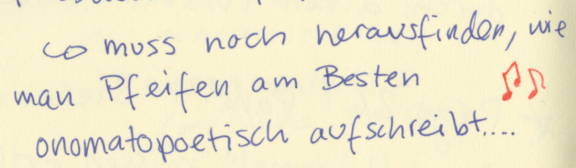 muss noch herausfinden, wie
man Pfeifen am Besten
onomatopoetisch aufschreibt....